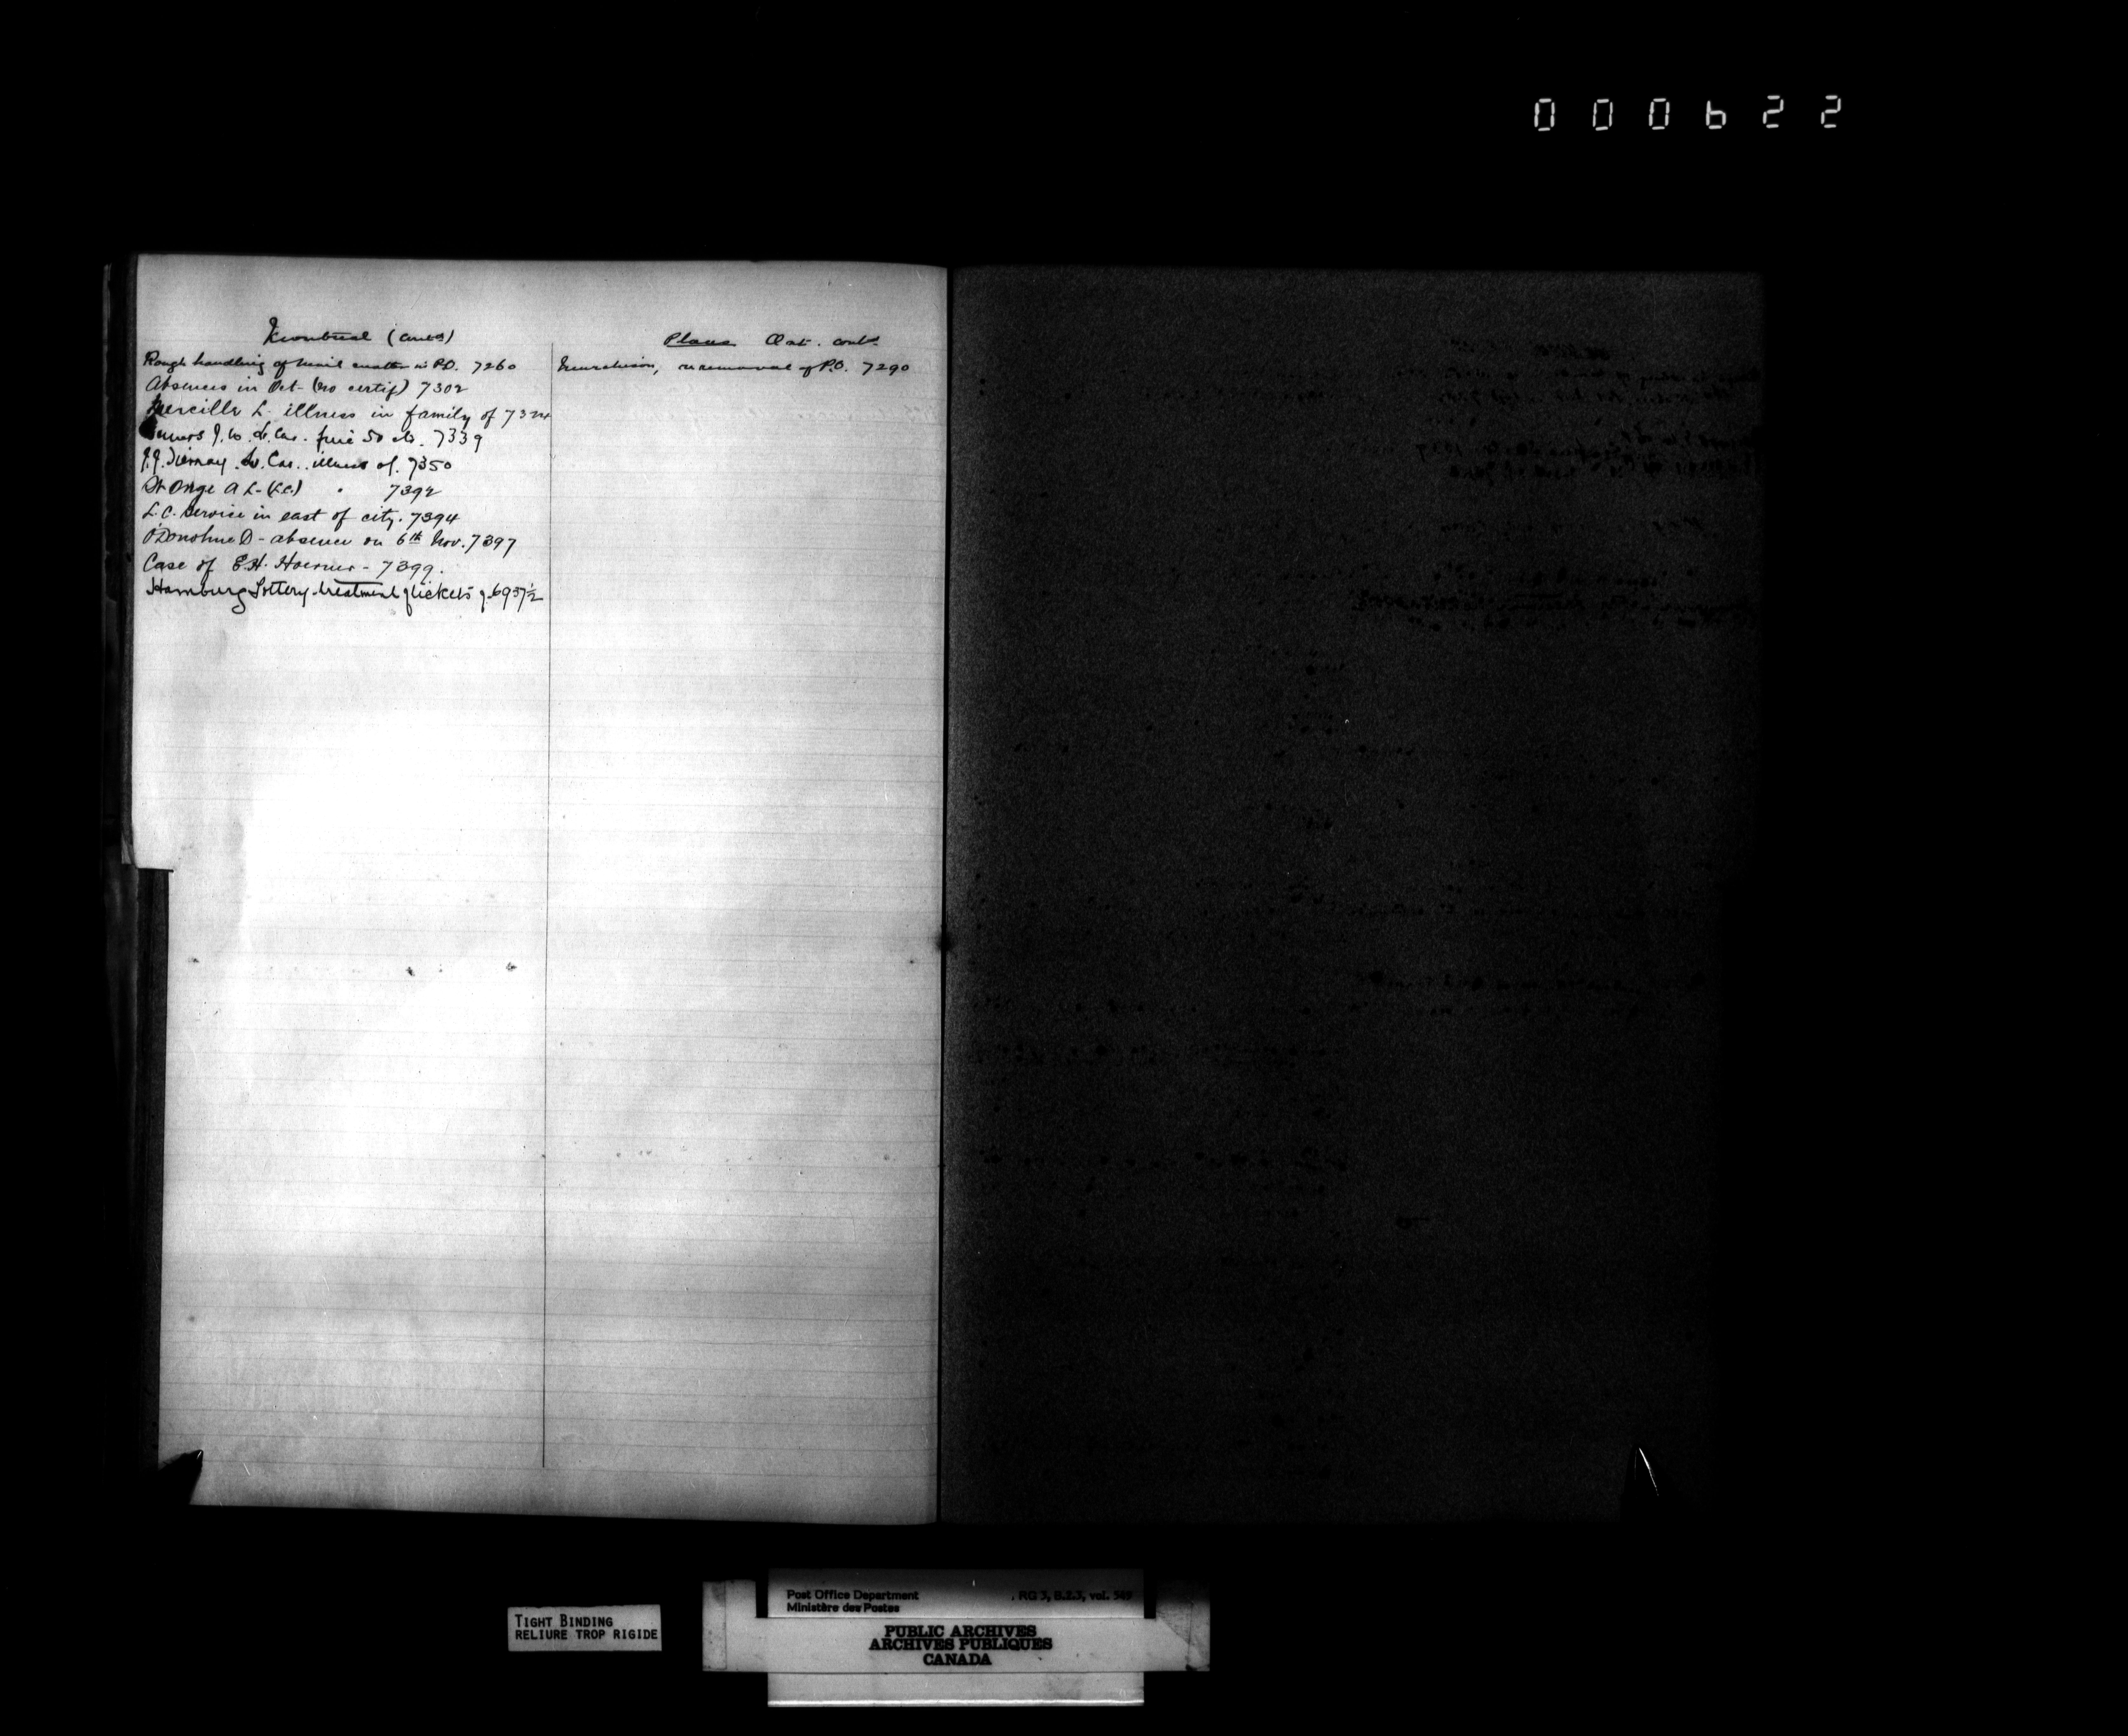 000622
Montreal (Contd)
Rough handling of mail matter in P.O. 7260
Absences in Oct- (no certif) 7302
Mercille L. illness in family of 7324
J. W. L. Car. fine 50 cts. 7339
J.J. Tiernay. L. Car. illness of. 7350
St Onge A L- (L.C.) " 7392
L.C. Service in east of city. 7394
O'Donohue D- absence on 6th Nov. 7397
Case of E.H. Hoerner - 7399.
Hamburg Lottery - treatment of tickets of 6957½
Places Oat. contd.
Murchison, re removal of P.O. 7290
Post Office Department
Ministère des Postes
, RG 3, B.2.3, vol. 549
TIGHT BINDING
RELIURE TROP RIGIDE
PUBLIC ARCHIVES
ARCHIVES PUBLIQUES
CANADA